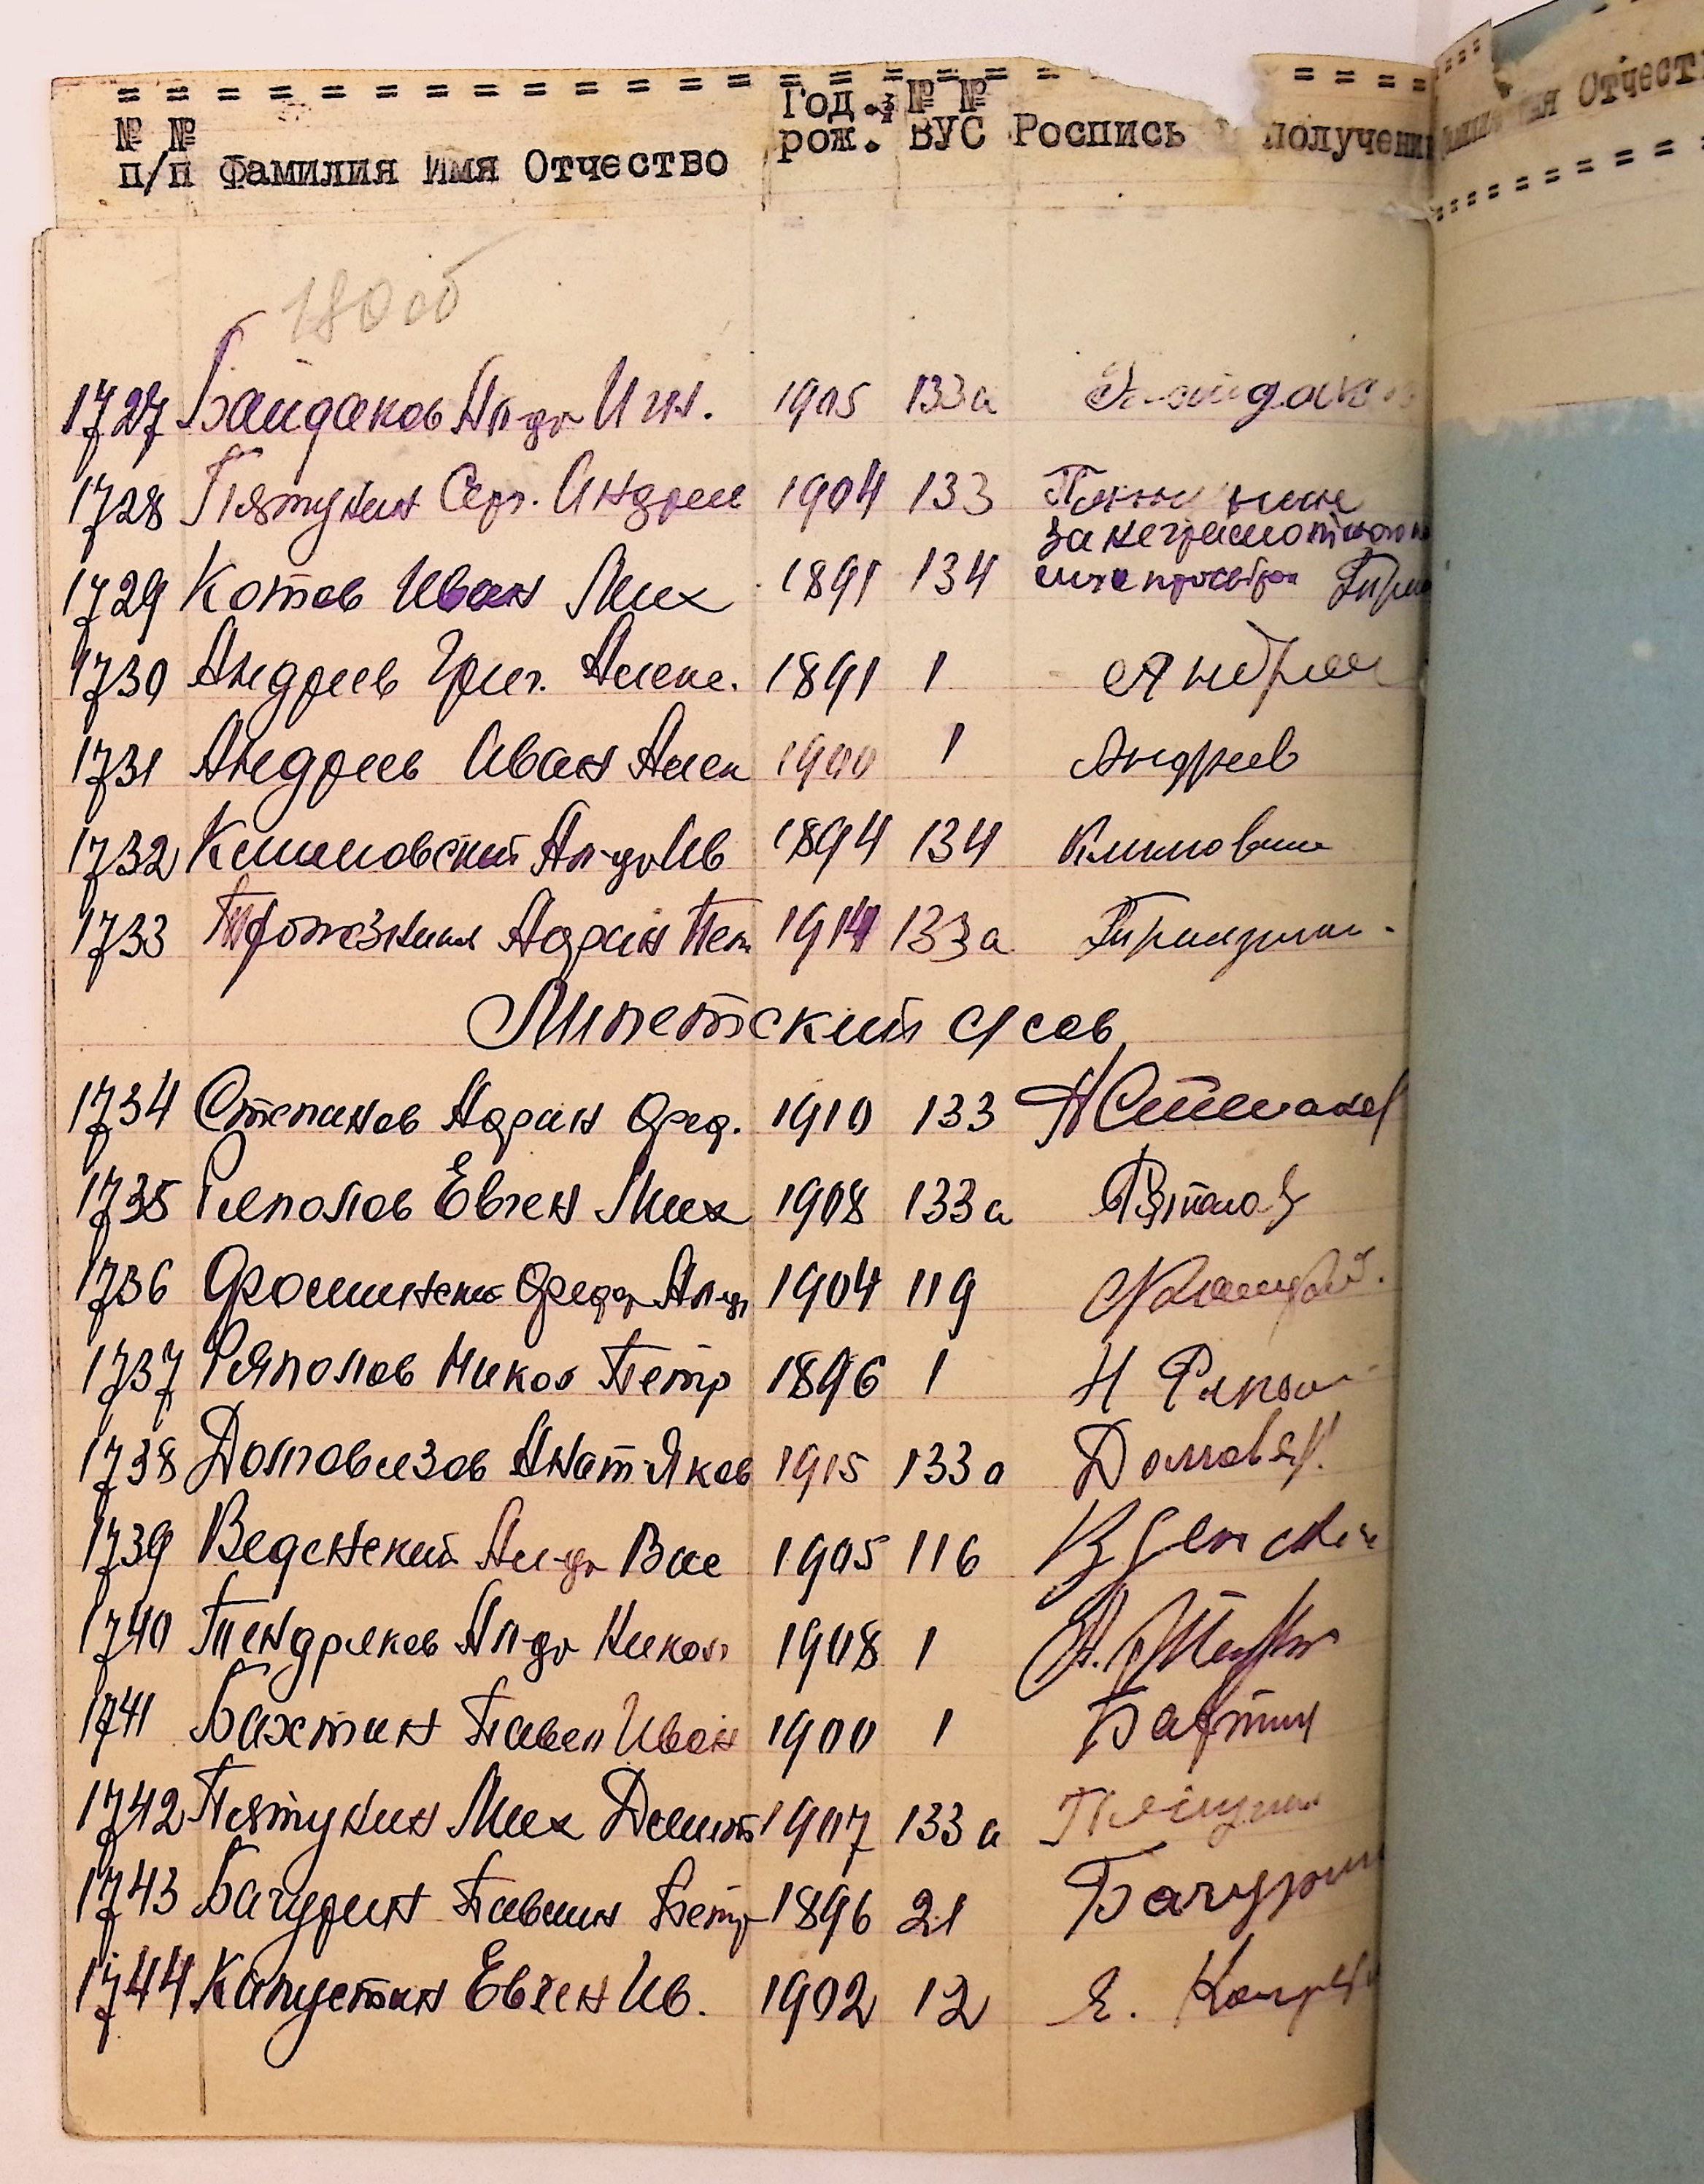 № № п/п Фамилия Имя Отчество Год рож. № № ВУС Роспись получени
180 об
1727 Байдаков Ал-др Игн. 1905 133а Байдаков
1728 Пятунин Серг. Андрее 1904 133 Пятунин
1729 Котов Иван Мих 1891 134 за неграмотного
его просьбы
1730 Андреев Григ. Алекс. 1891 1 Андреев
1731 Андреев Иван Алек 1900 1 Андреев
1732 Климовский Ал-др Ив 1894 134 Климовски
1733 Адриан Пет 1914 133а
Липетский с/сов
1734 Степанов Адриан Фед. 1910 133 А Степанов
1735 Ряполов Евген Мих 1908 133а Ряполов
1736 Фоминский Федор Ал-др 1904 119
1737 Ряполов Никол Петр 1896 1 Н Ряпол
1738 Долговязов Анат Яков 1915 133а Долговяз
1739 Веденский Ал-др Вас 1905 116 Веденский
1740 Тендряков Ал-др Никол 1908 1
1741 Бахтин Павел Иван 1900 1 Бахтин
1742 Пятунин Мих Дмит 1907 133а Пятунин
1743 Бачурин Павлин Петр 1896 21 Бачурин
1744 Капустин Евген Ив. 1902 12 Е. Капусти